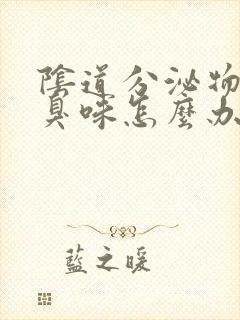 陰道分泌物
臭味怎麼办
藍之暖